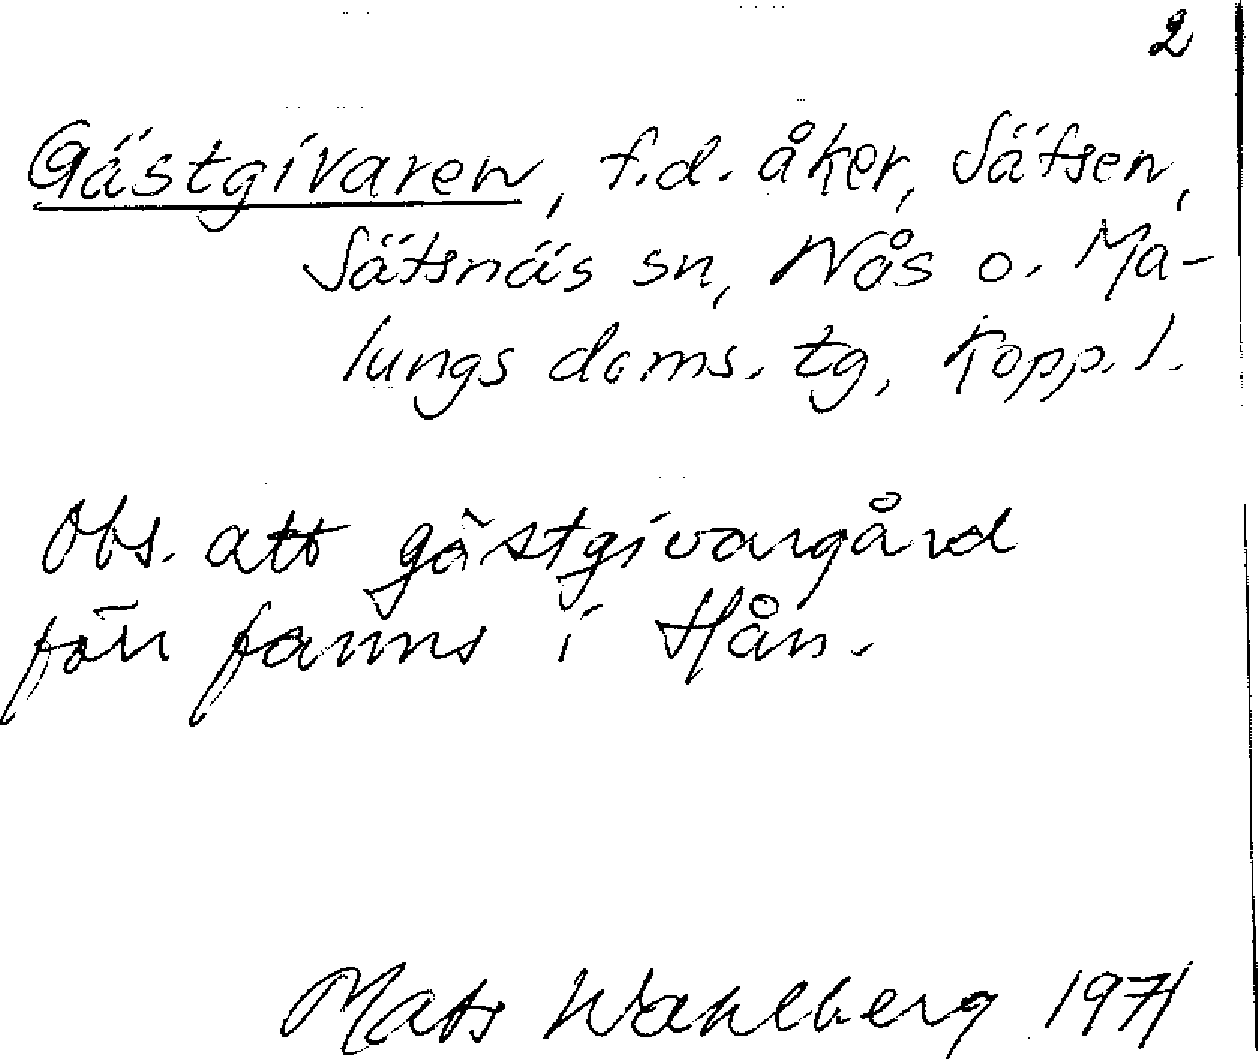 2
Gästgivaren, f.d. åker, Sätsen,
Sätsnäs sn, Nås o. Ma-
lungs doms. tg, Kopp. l.
Obs. att gästgivargård
förr fanns i Hån.
Mats Wahlberg 1971